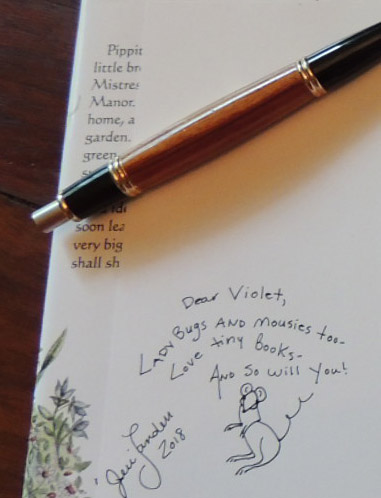 Pippit
little br
Mistres
Manor.
home, a
garden.
green
soon lea
very big
shall sh
Dear Violet,
LADY Bugs AND Mousies too-
Love tiny Books-
AND So Will You!
Jeri Landers
2018